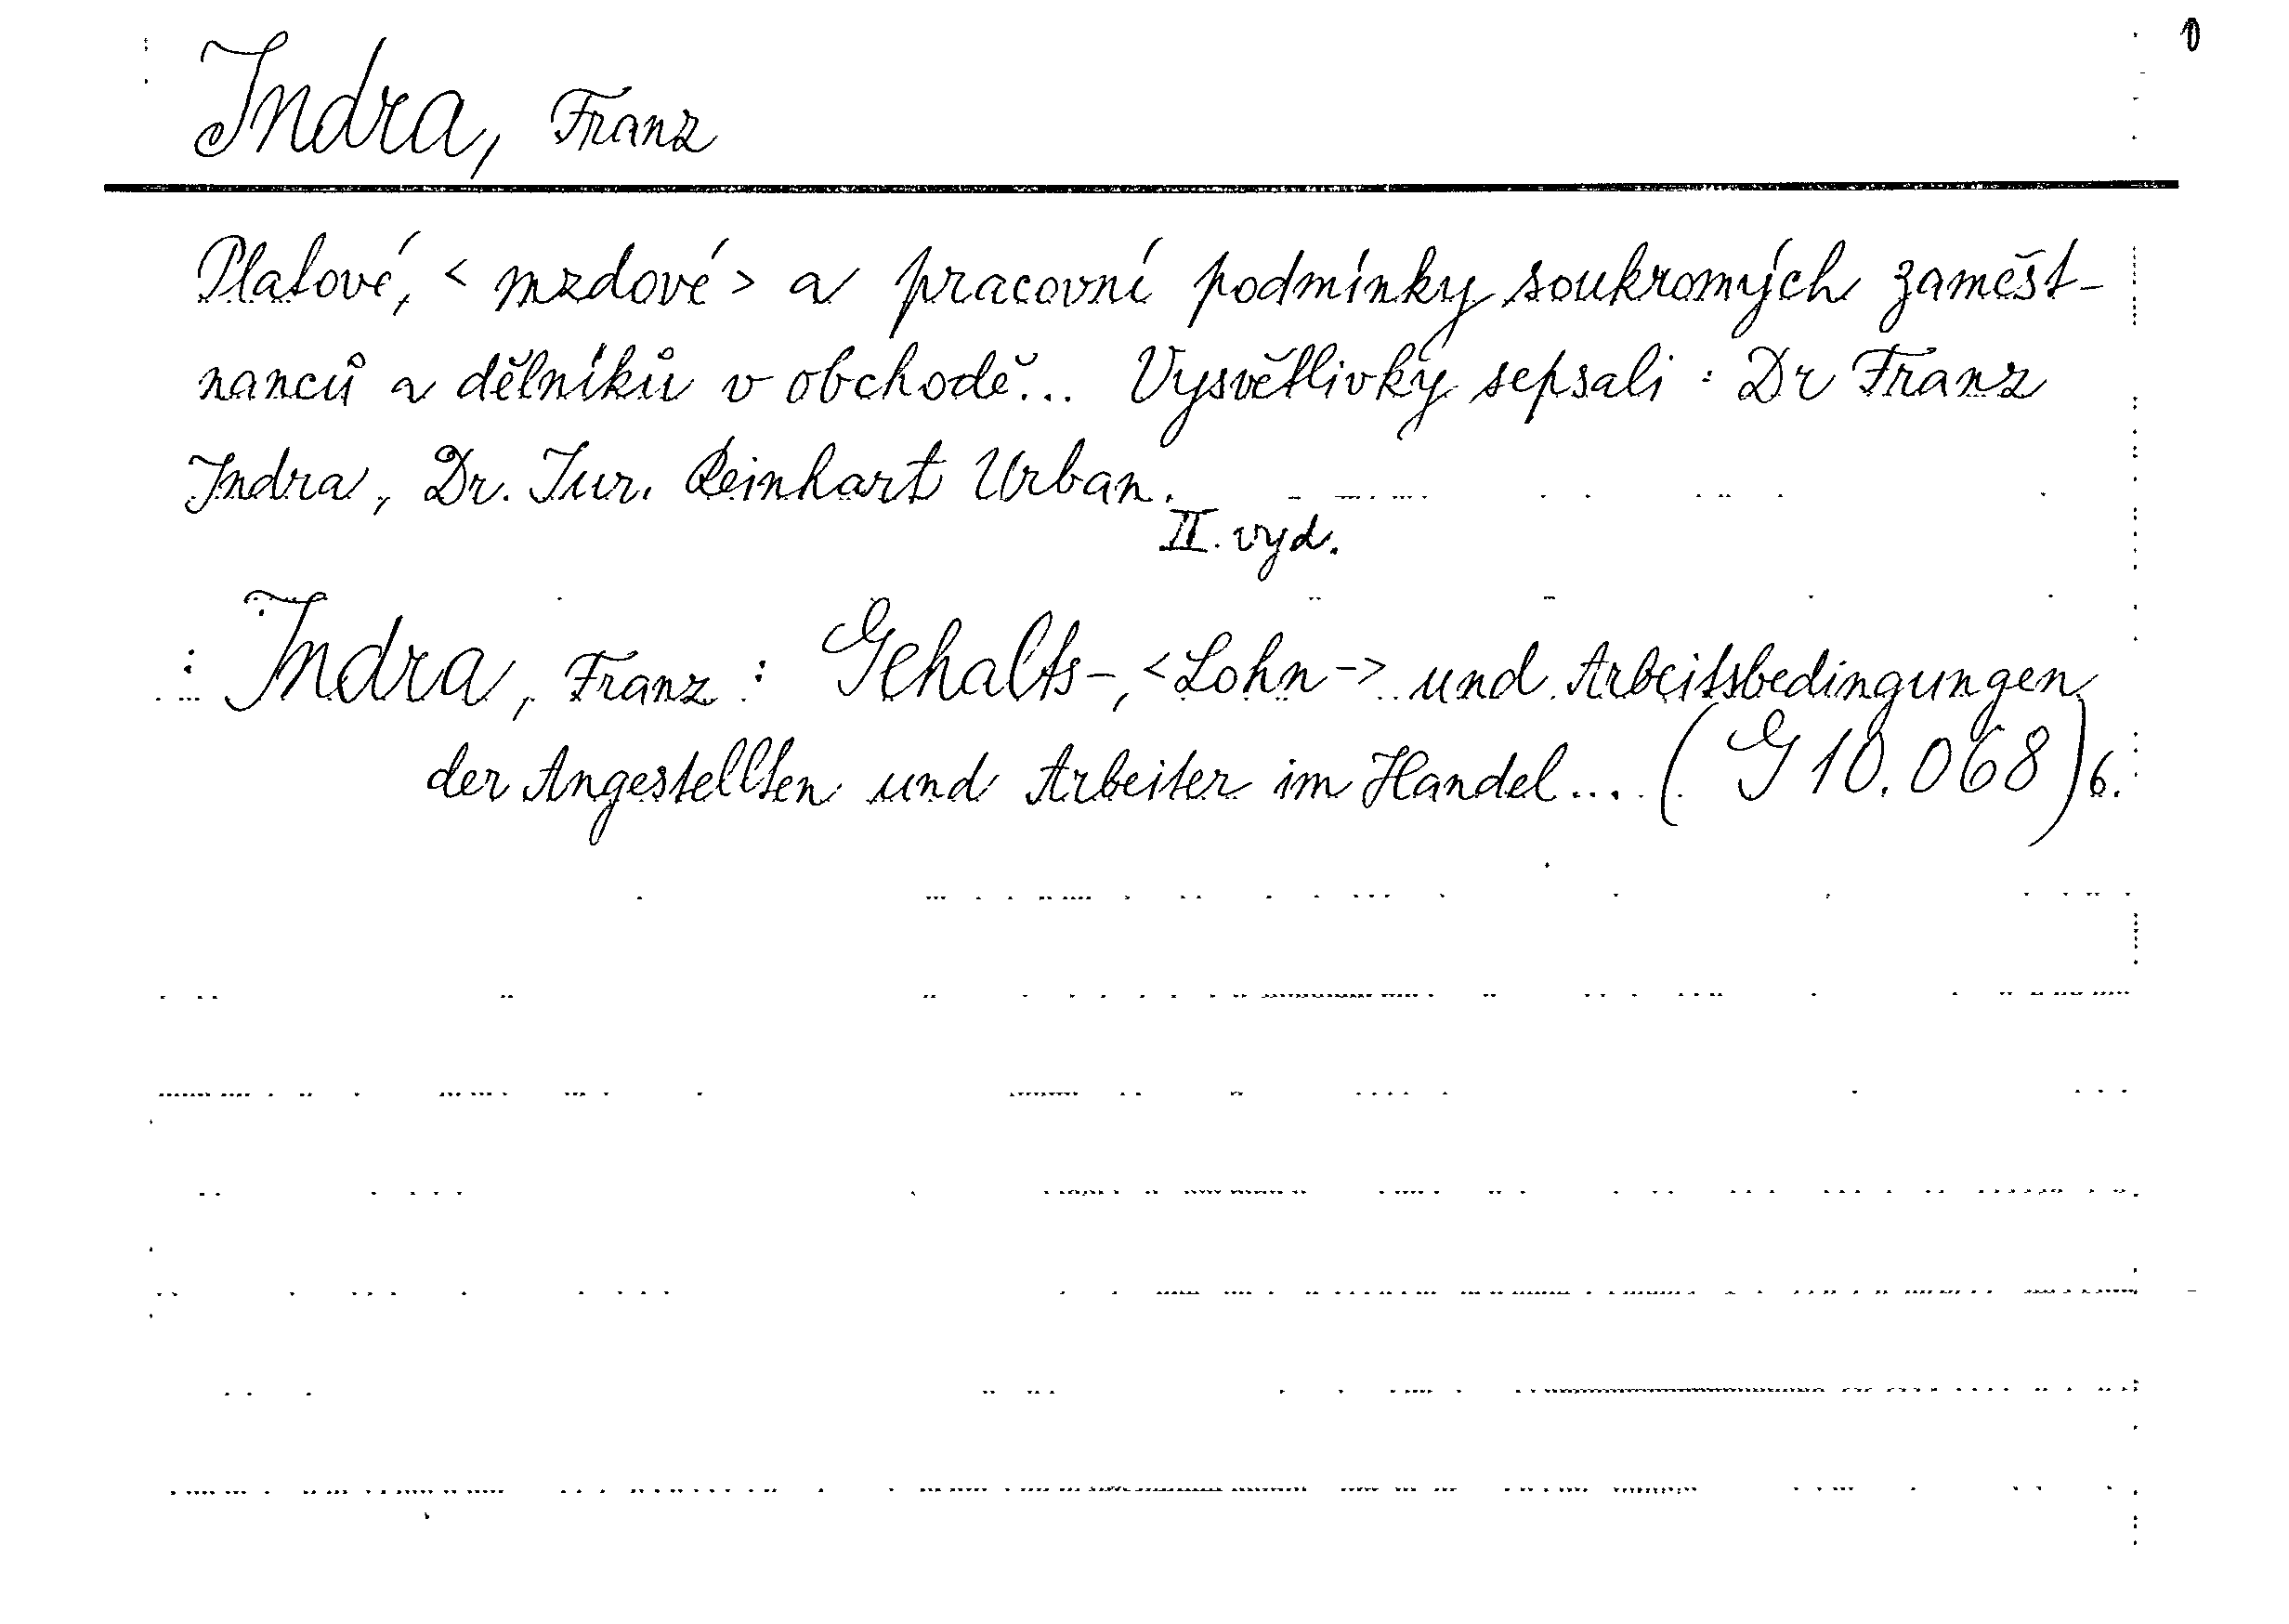 Indra, Franz
Platové, < mzdové > a pracovní podmínky soukromých zaměst-
nanců a dělníků v obchodě... Vysvětlivky sepsali : Dr Franz
Indra, Dr. Jur. Reinhart Urban.
II. vyd.
: Indra, Franz : Gehalts-, <Lohn-> und Arbeitsbedingungen
der Angestellten und Arbeiter im Handel.... (G 10.068) 6.